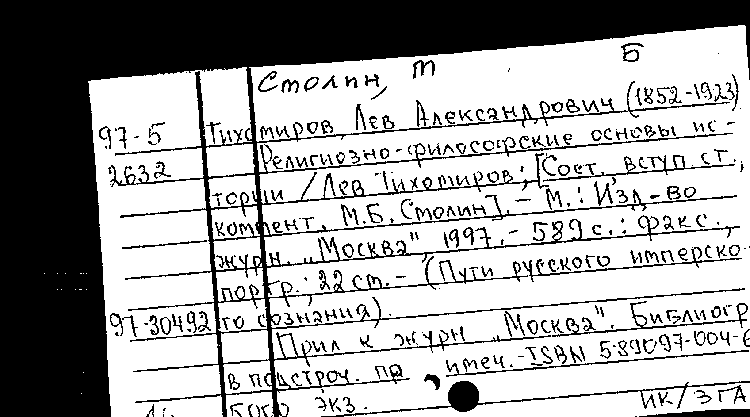 Столин, М Б
97-5 Тихомиров, Лев Александрович (1852-1923)
2632 Религиозно-философские основы ис-
тории / Лев Тихомиров; [Сост., вступ. ст.,
коммент. М.Б. Столин]. - М.: Изд-во
журн. „Москва", 1997. - 589 с.: факс.,
портр.; 22 см. - (Пути русского имперско-
97-30492 го сознания).
Прил к журн „Москва". Библиогр
в подстроч. примеч. - ISBN 5-89097-004-6
экз.
ИК/ЗГА